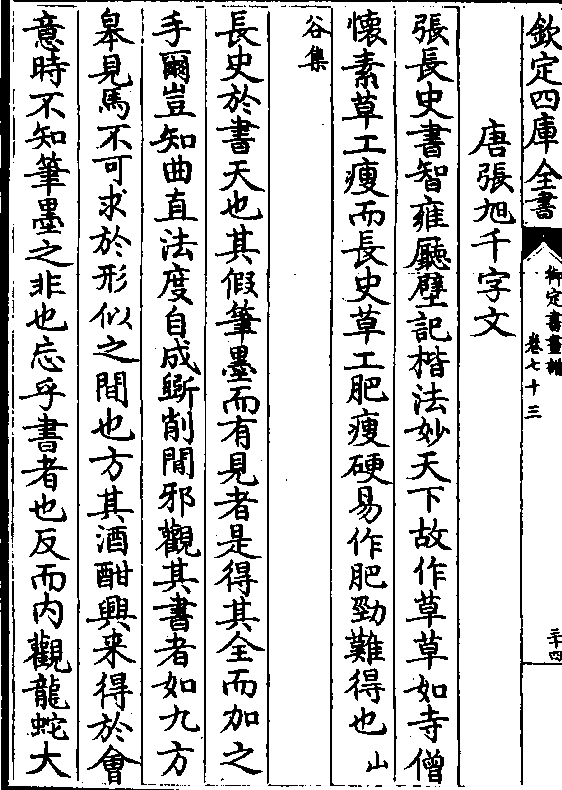 欽定四庫全書
御定書畫譜
卷七十三
三十四
唐張旭千字文
張長史書智雍廳壁記楷法妙天下故作草草如寺僧
懷素草工瘦而長史草工肥瘦硬易作肥勁難得也山
谷集
長史於書天也其假筆墨而有見者是得其全而加之
手爾豈知曲直法度自成斲削間邪觀其書者如九方
皋見馬不可求於形似之間也方其酒酣興来得於會
意時不知筆墨之非也忘乎書者也反而内觀龍蛇大